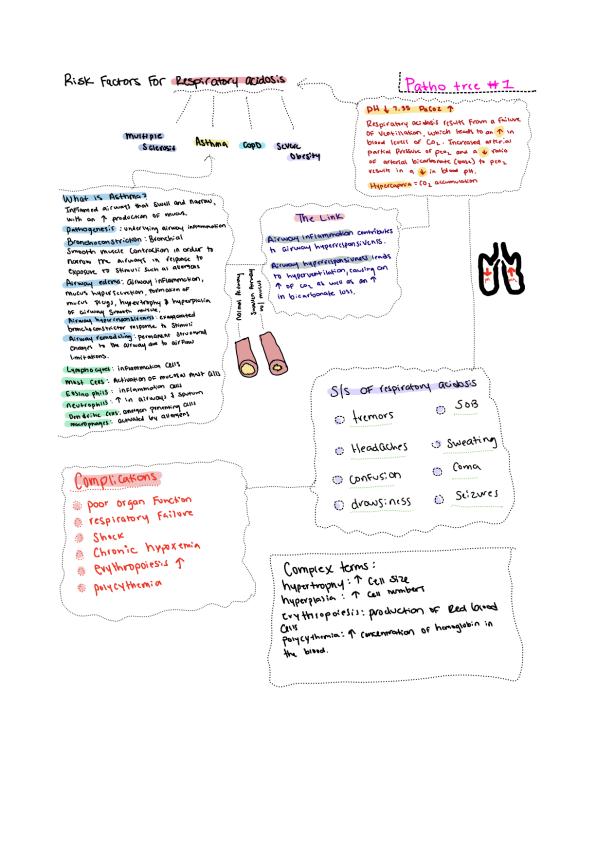 Risk Factors For Respiratory acidosis
Patho tree #1
PH ↓ 7.35 PaCO2 ↑
Respiratory acidosis results from a failure
of ventilation, which leads to an ↑ in
blood levels of CO2. Increased arterial
partial pressure of pco2 and a ↓ ratio
of arterial bicarbonate (base) to pco2
results in a ↓ in blood pH.
Hypercapnia = CO2 accumulation
Multiple
Sclerosis
Asthma
COPD
Severe
Obesity
What is Asthma?
Inflamed airways that swell and narrow,
with an ↑ production of mucus.
Pathogenesis: underlying airway inflammation
Bronchoconstriction: Bronchial
Smooth muscle contraction in order to
narrow the airways in response to
exposure to stimuli such as allergens
Airway edema: Airway inflammation,
mucus hypersecretion, formation of
mucus plugs, hypertrophy & hyperplasia
of airway smooth muscle.
Airway hyperresponsiveness: exaggerated
bronchoconstrictor response to stimuli
Airway remodeling: permanent structural
changes to the airway due to airflow
limitations.
Lymphocytes: inflammation cells
Mast Cells: Activation of mucosal mast cells
Eosinophils: inflammation cells
neutrophils: ↑ in airways & sputum
Dendritic cells: antigen presenting cells
macrophages: activated by allergens
The Link
Airway inflammation contributes
to airway hyperresponsiveness.
Airway hyperresponsiveness leads
to hypoventilation, causing an
↑ of co2 as well as an ↑
in bicarbonate loss.
Normal Airway
Swollen Airway
w/ mucus
S/S of respiratory acidosis
tremors
SOB
Headaches
Sweating
Confusion
Coma
drowsiness
Seizures
Complications
poor organ function
respiratory failure
Shock
Chronic hypoxemia
erythropoiesis ↑
polycythemia
Complex terms:
hypertrophy: ↑ cell size
hyperplasia: ↑ cell numbers
erythropoiesis: production of Red blood
cells
polycythemia: ↑ concentration of hemoglobin in
the blood.